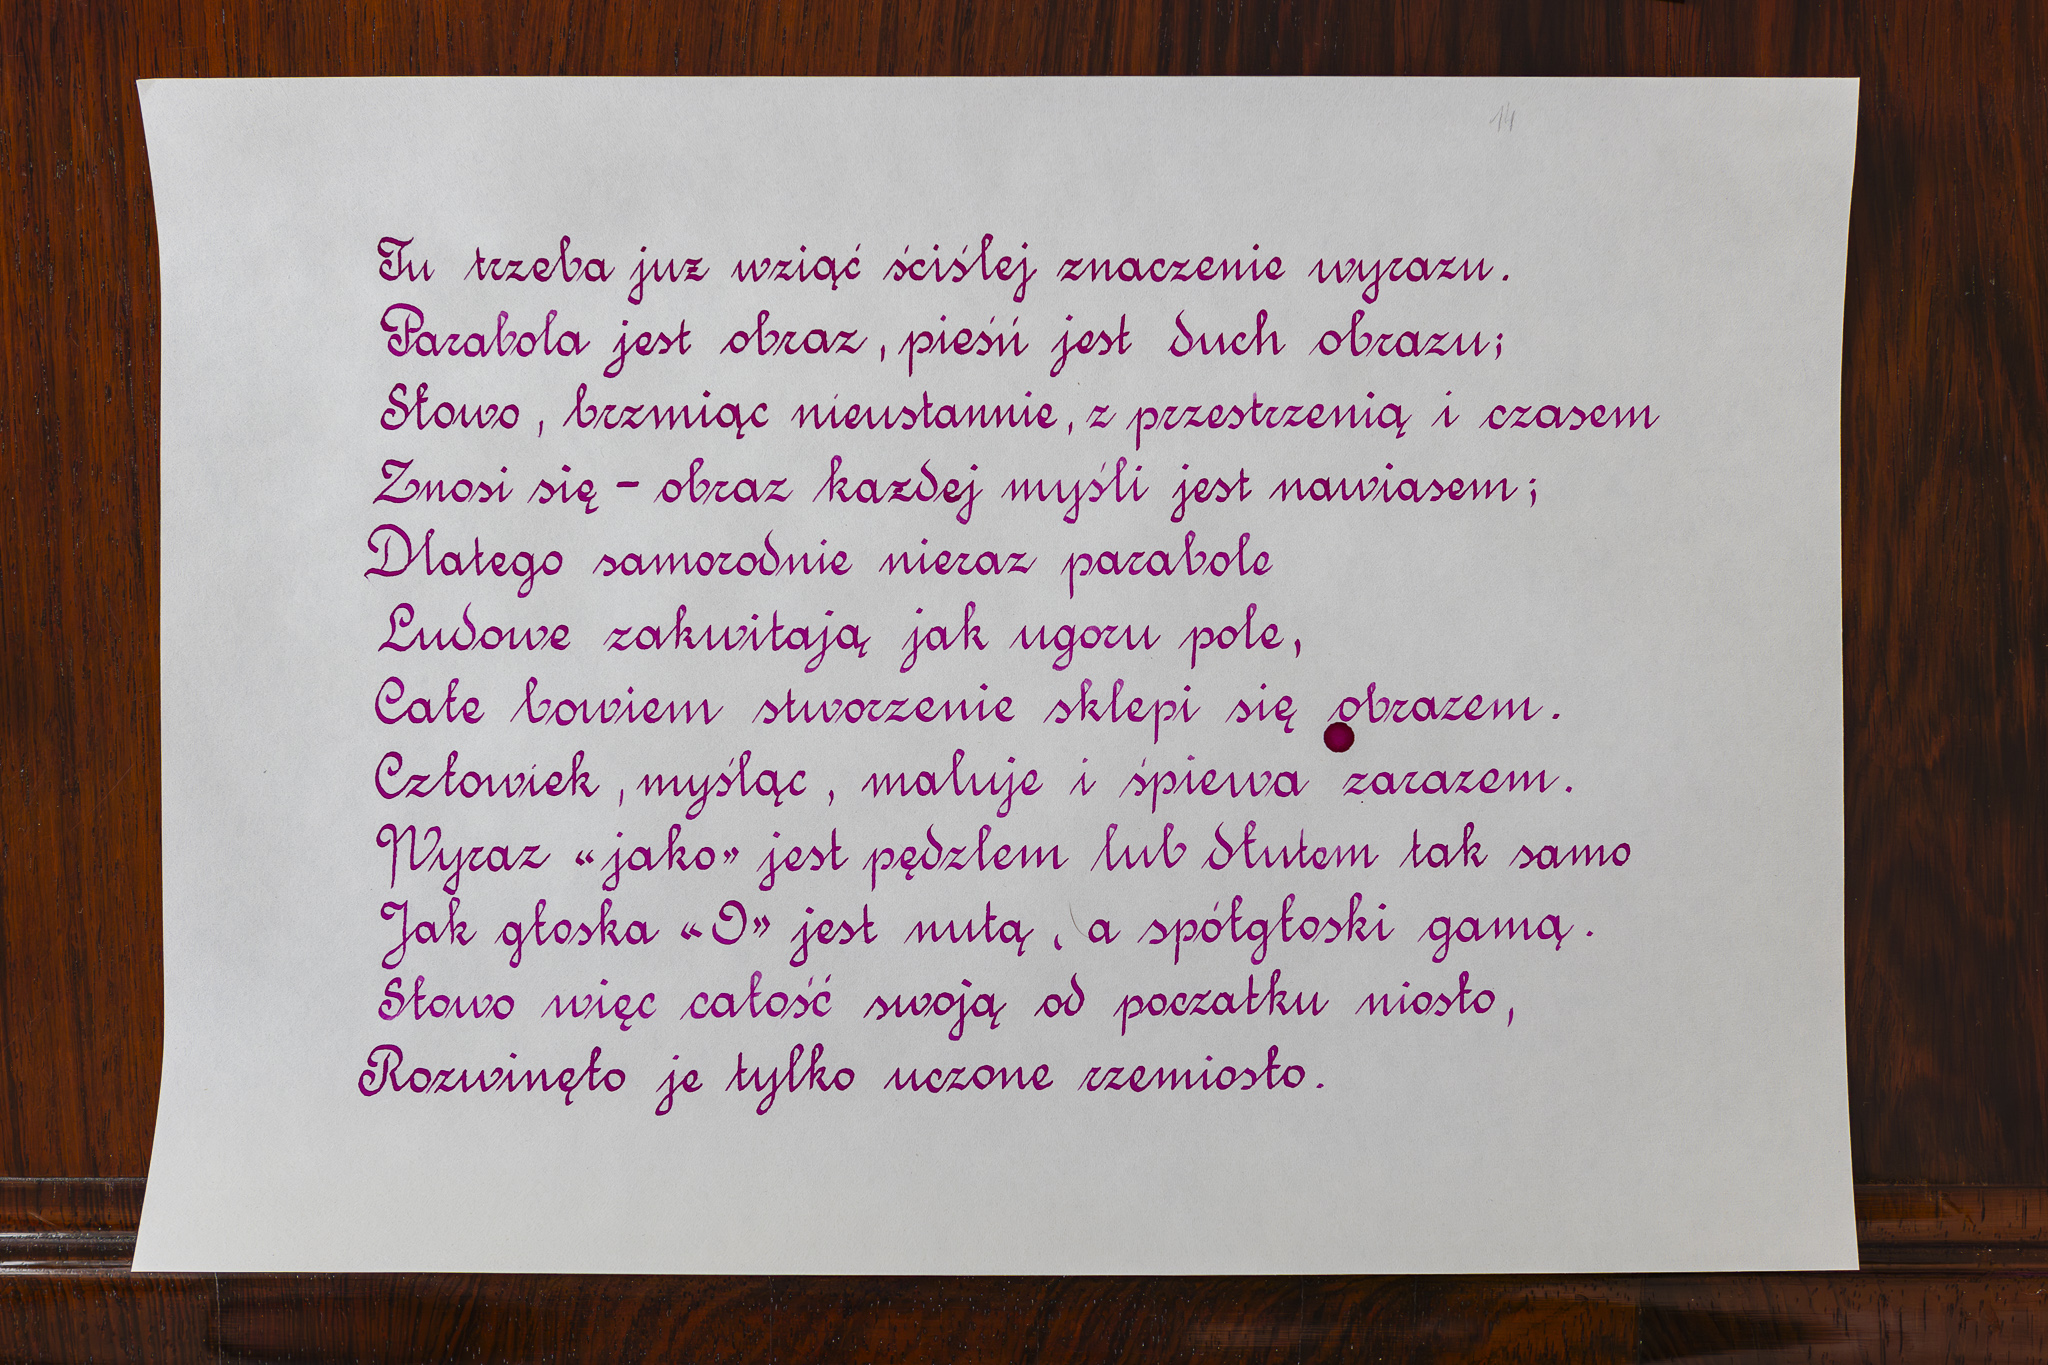 14
Tu trzeba już wziąć ściślej znaczenie wyrazu.
Parabola jest obraz, pieśń jest duch obrazu;
Słowo, brzmiąc nieustannie, z przestrzenią i czasem
Znosi się – obraz każdej myśli jest nawiasem;
Dlatego samorodnie nieraz parabole
Ludowe zakwitają jak ugoru pole,
Całe bowiem stworzenie sklepi się obrazem.
Człowiek, myśląc, maluje i śpiewa zarazem.
Wyraz «jako» jest pędzlem lub dłutem tak samo
Jak głoska «O» jest nutą, a spółgłoski gamą.
Słowo więc całość swoją od poczatku niosło,
Rozwinęło je tylko uczone rzemiosło.